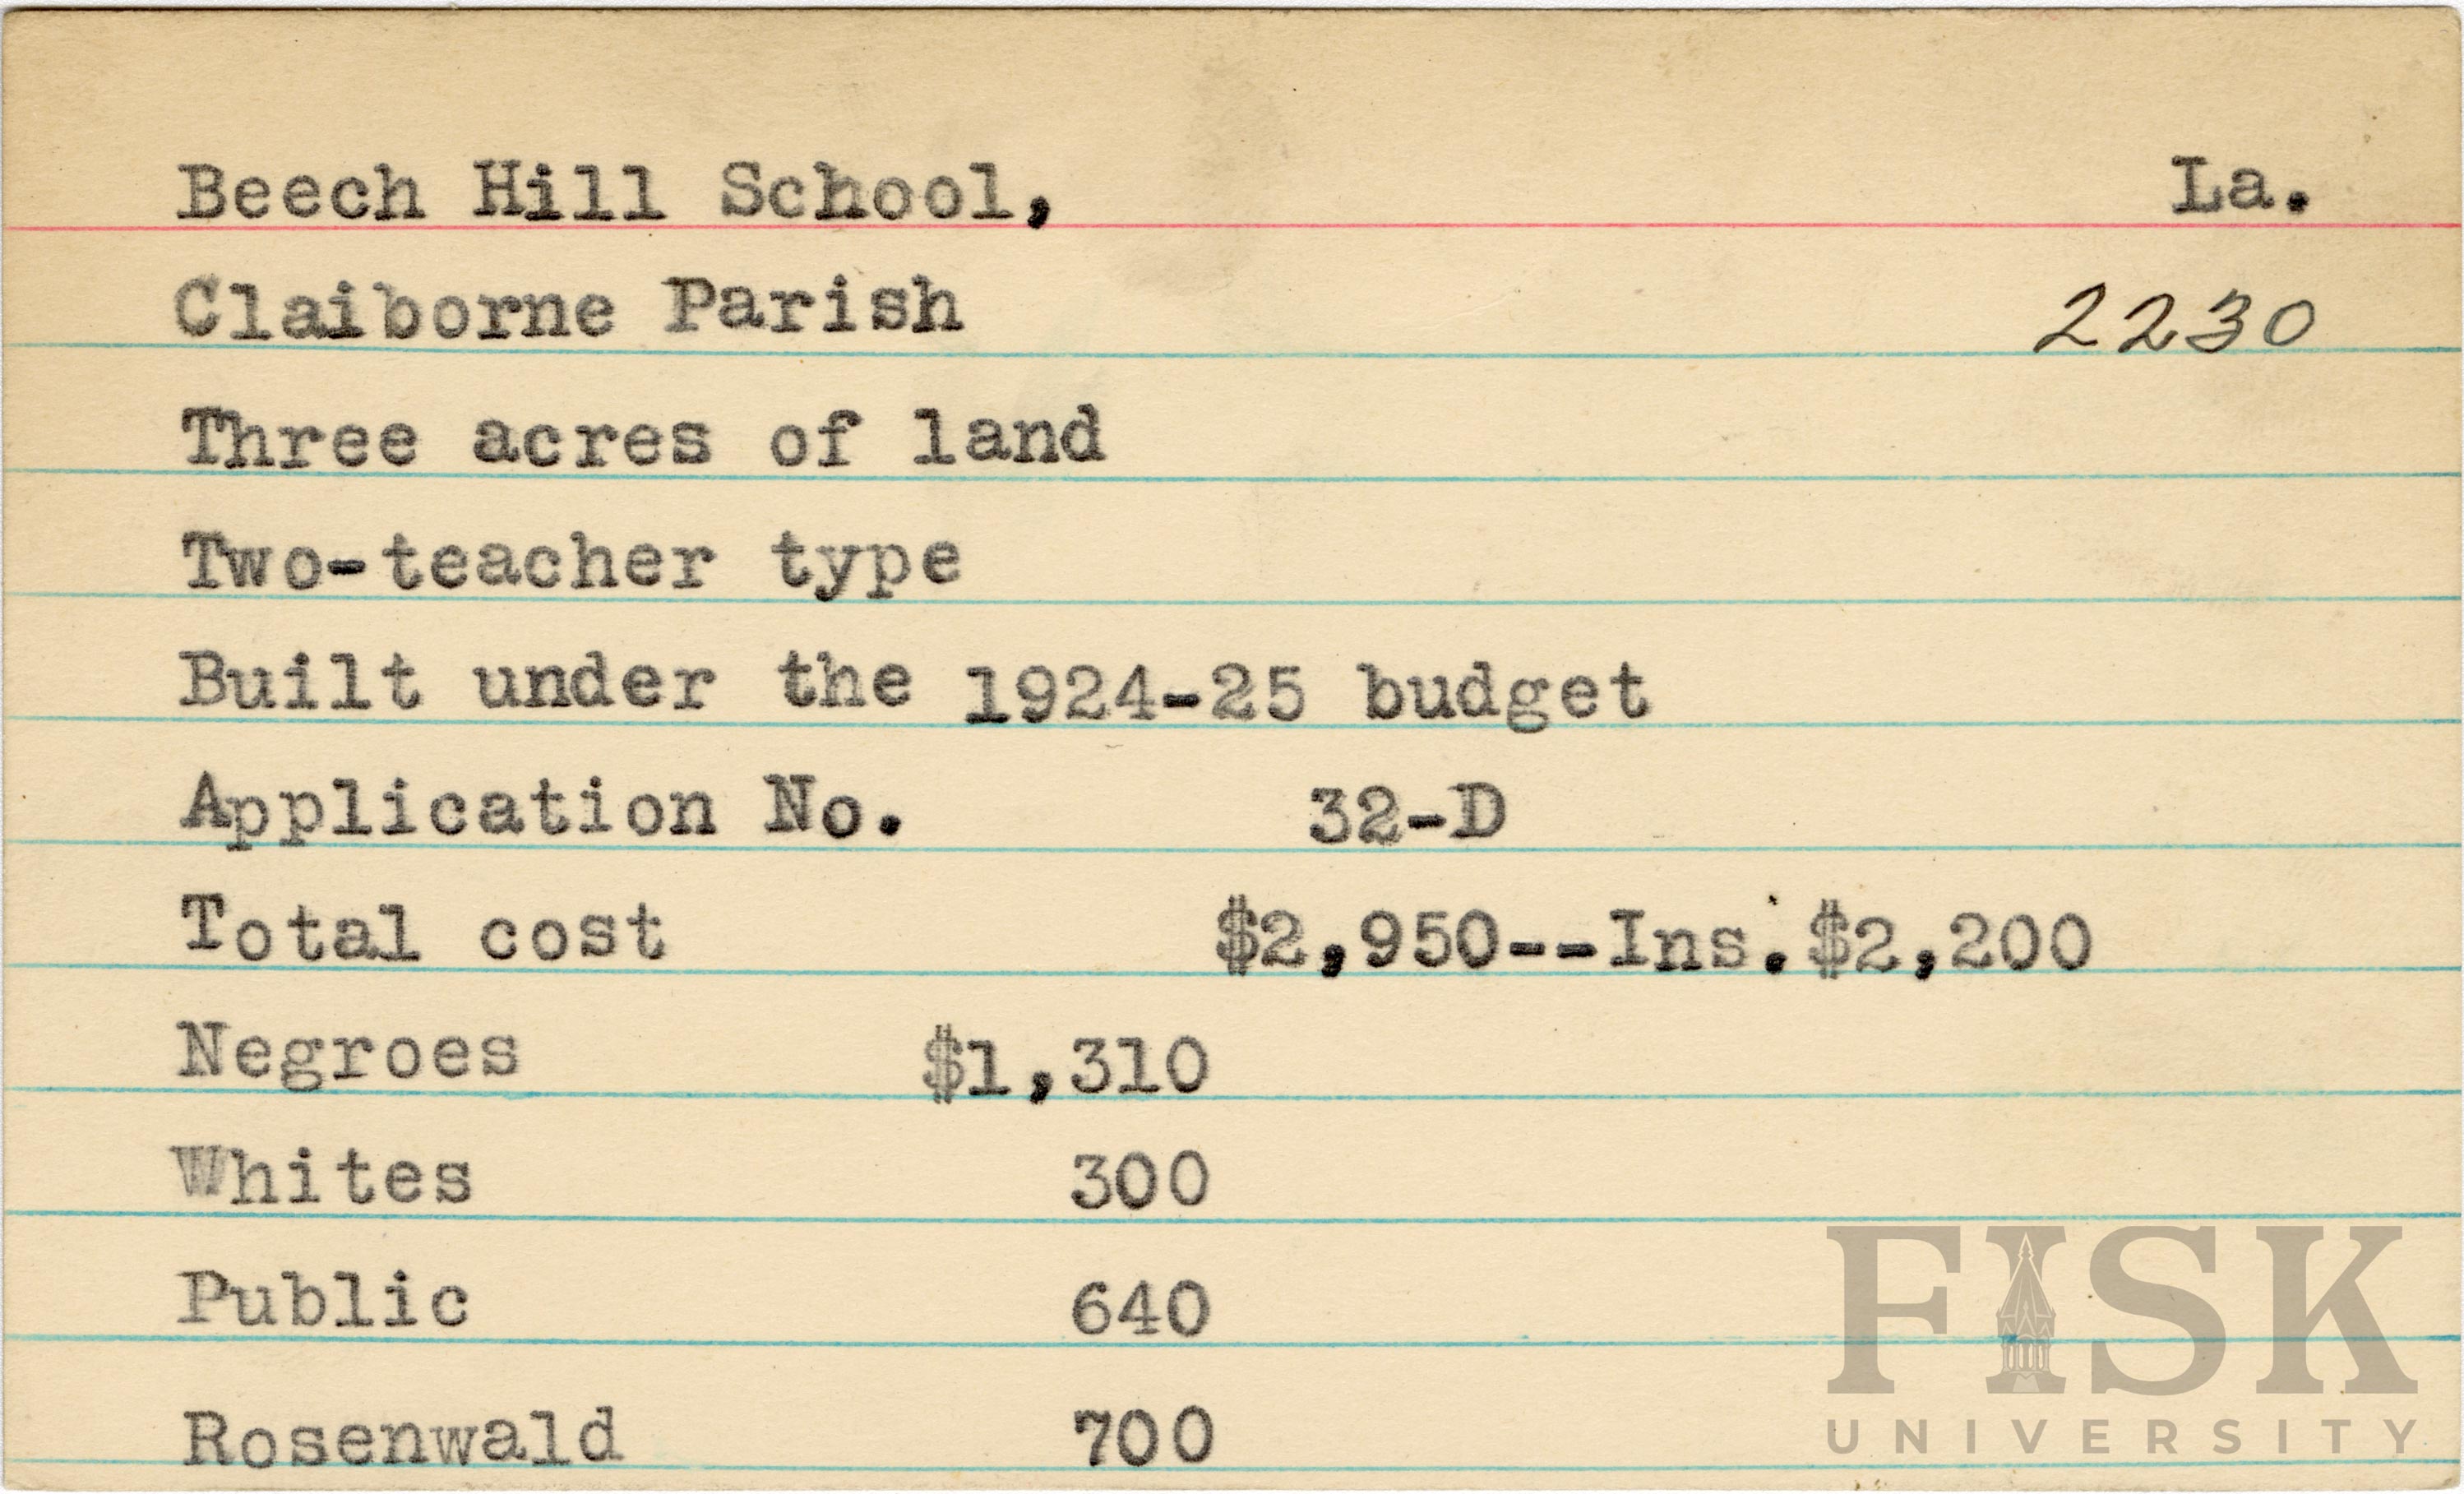 Beech Hill School, La.
Claiborne Parish 2230
Three acres of land
Two-teacher type
Built under the 1924-25 budget
Application No. 32-D
Total cost $2,950--Ins. $2,200
Negroes $1,310
Whites 300
Public 640
Rosenwald 700
FISK
UNIVERSITY